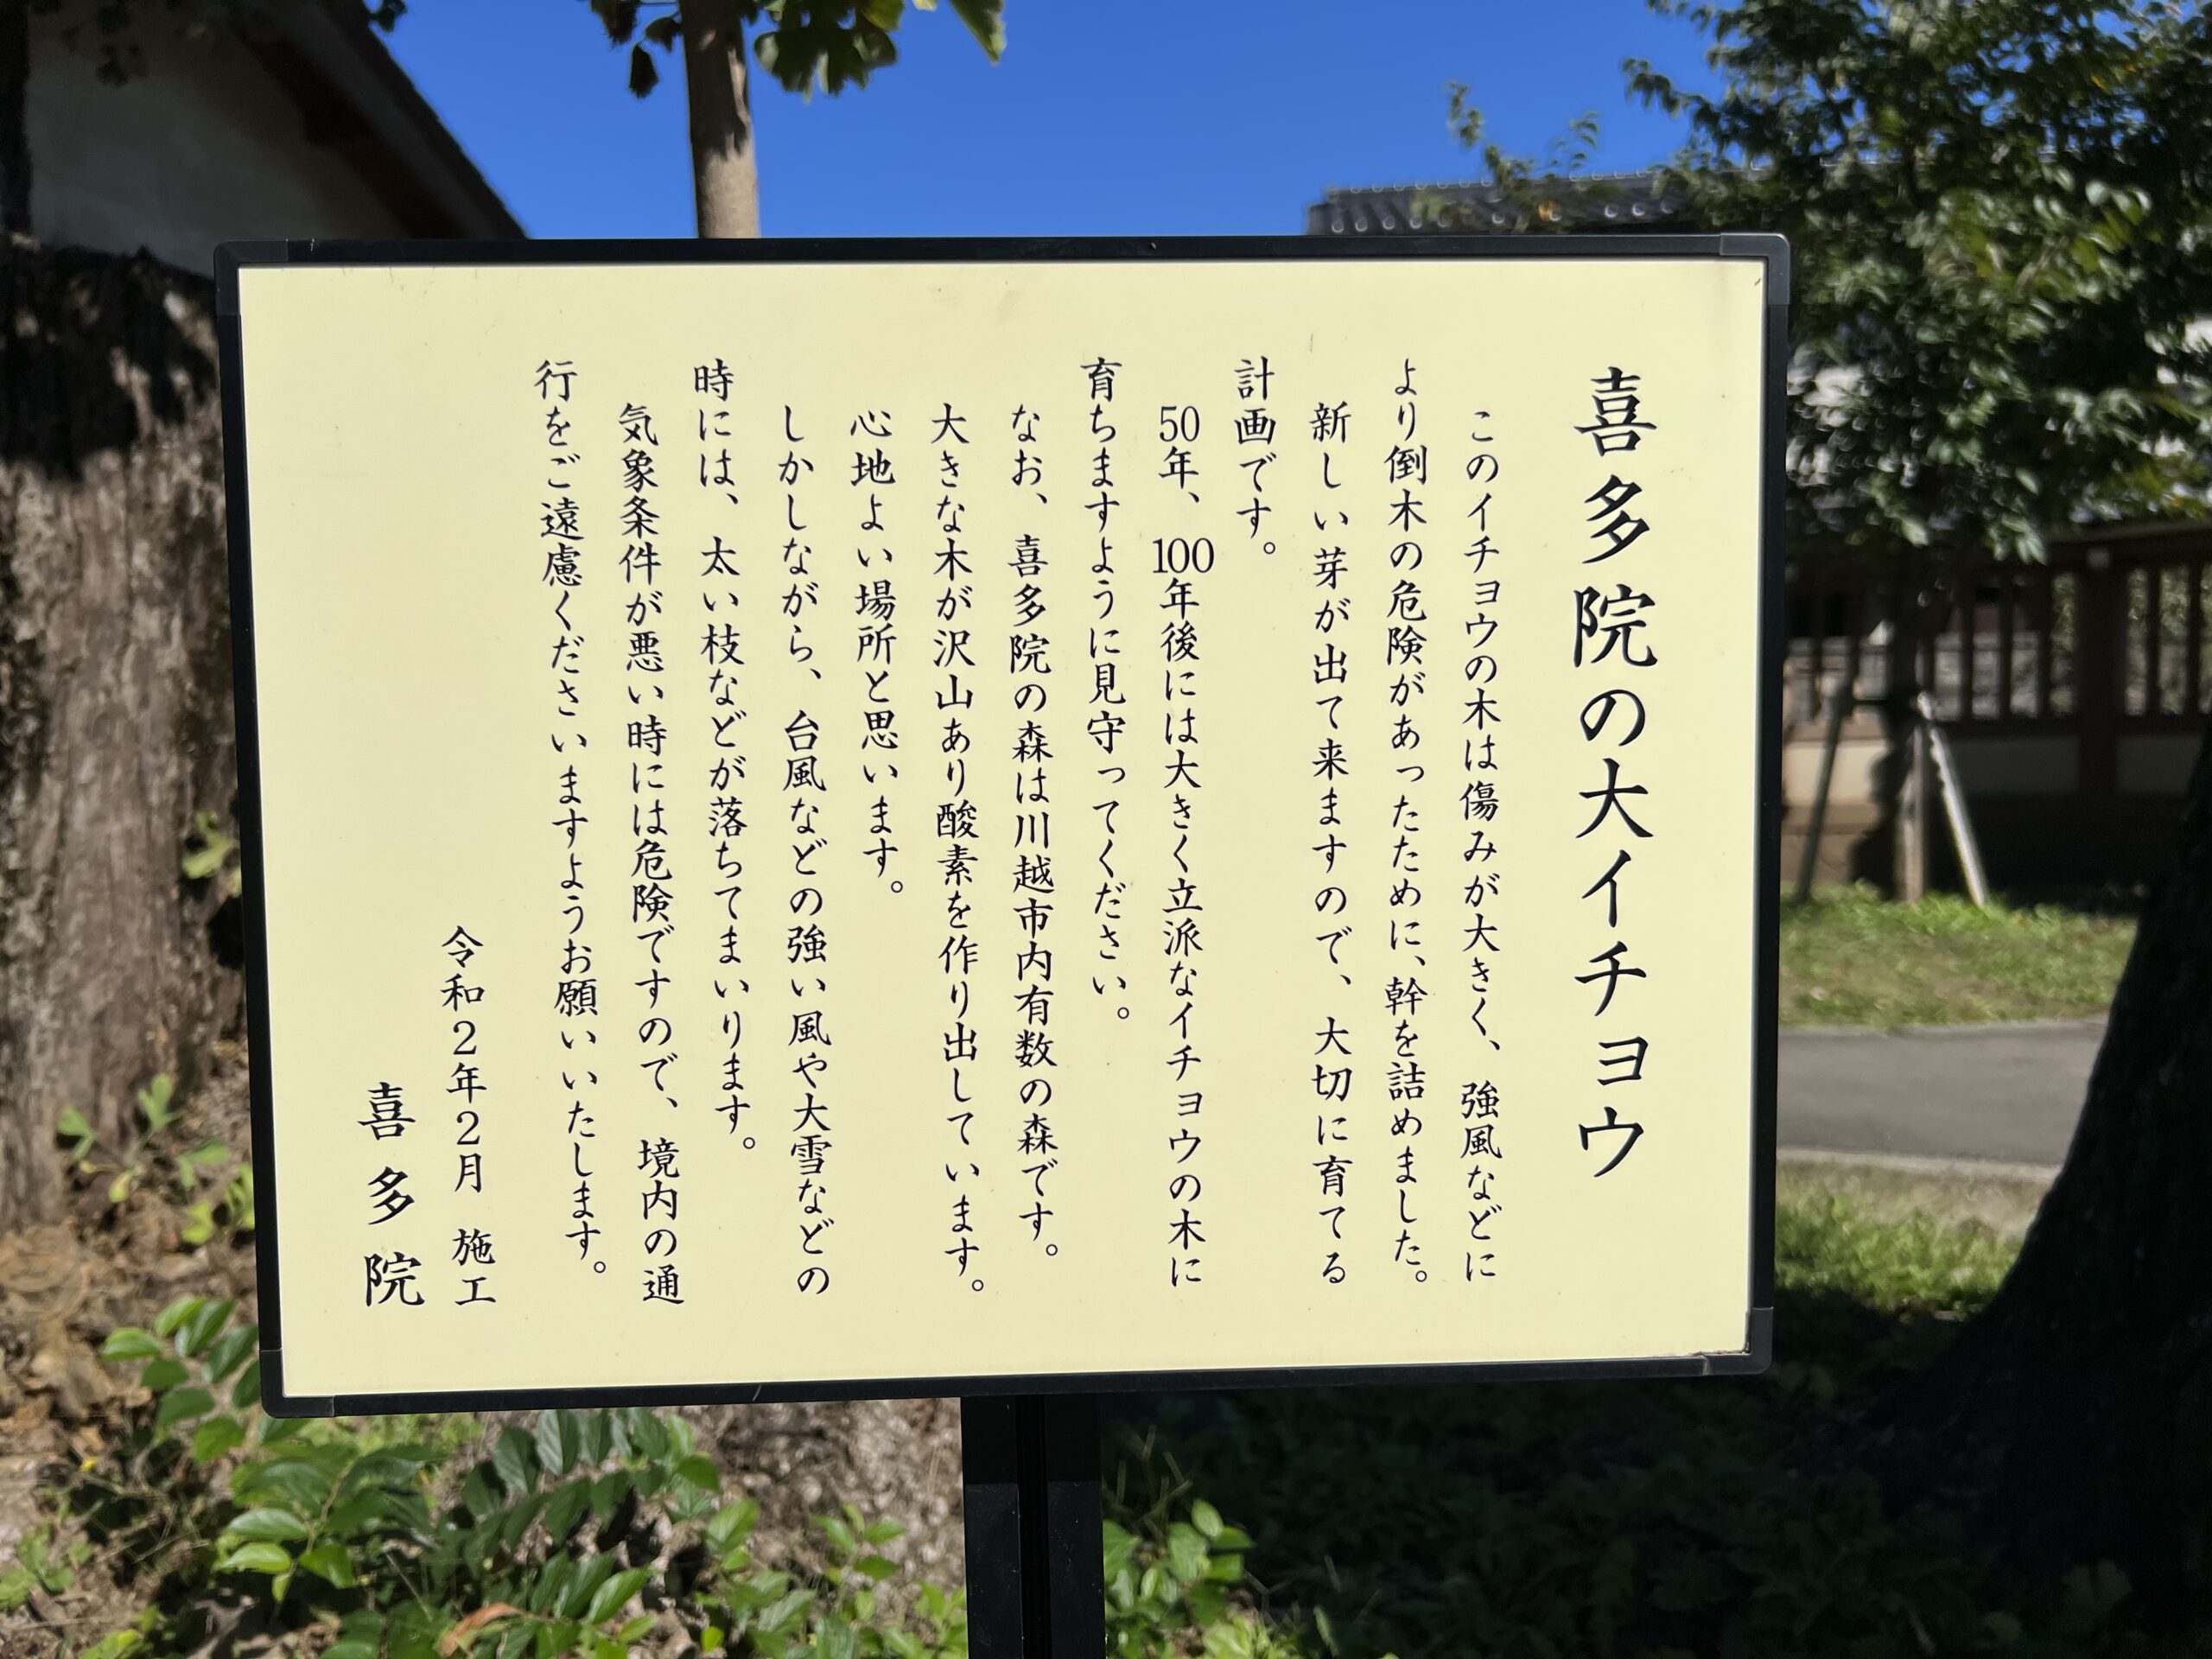 喜多院の大イチョウ
このイチョウの木は傷みが大きく、強風などに
より倒木の危険があったために、幹を詰めました。
新しい芽が出て来ますので、大切に育てる
計画です。
50年、100年後には大きく立派なイチョウの木に
育ちますように見守ってください。
なお、喜多院の森は川越市内有数の森です。
大きな木が沢山あり酸素を作り出しています。
心地よい場所と思います。
しかしながら、台風などの強い風や大雪などの
時には、太い枝などが落ちてまいります。
気象条件が悪い時には危険ですので、境内の通
行をご遠慮くださいますようお願いいたします。
令和2年2月 施工
喜多院